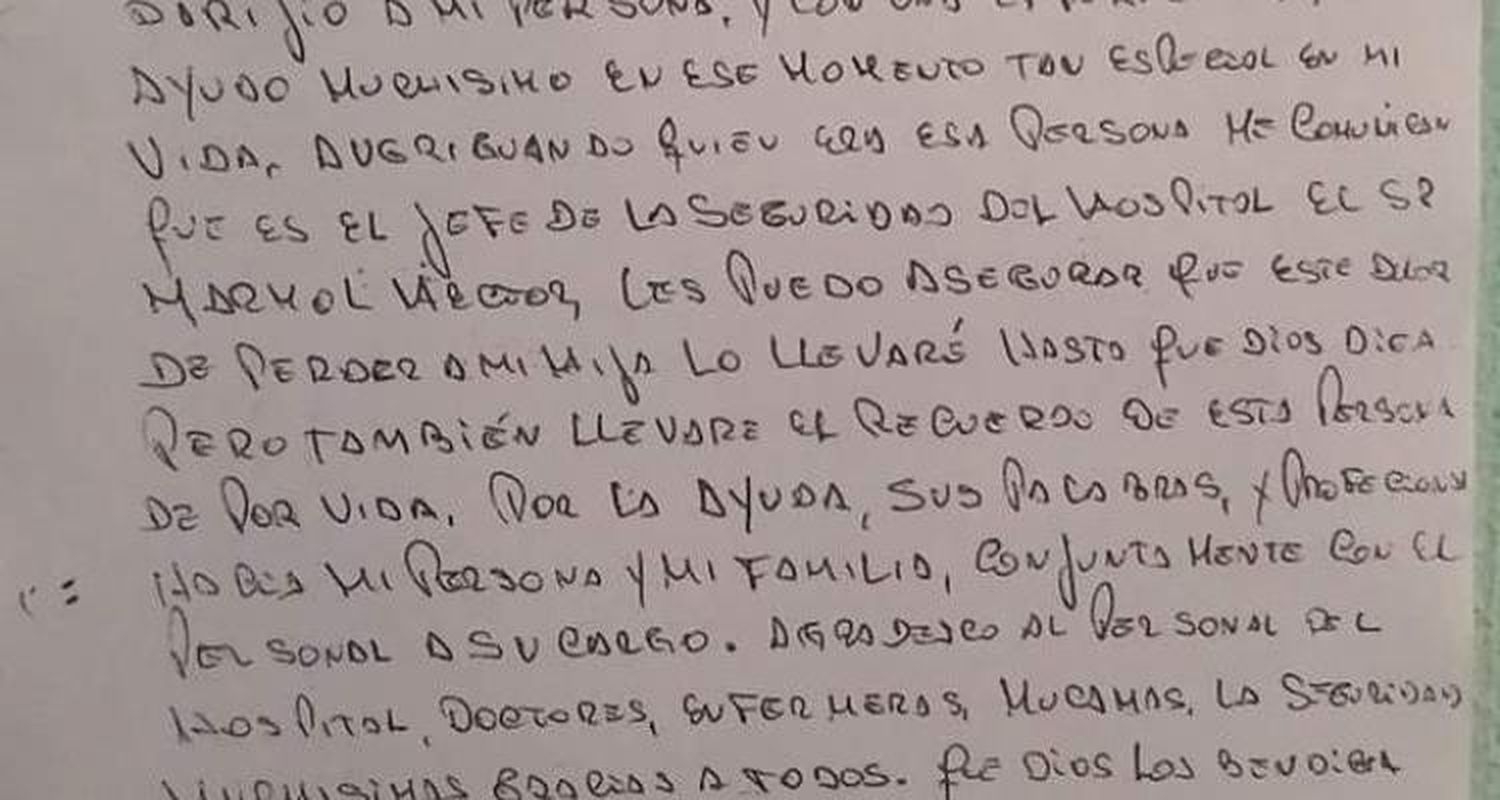 DIRIJIO A MI PERSONA, Y CON UNA
AYUDO MUCHISIMO EN ESE MOMENTO TAN ESPECIAL EN MI
VIDA, AVERIGUANDO QUIEN ERA ESA PERSONA ME COMUNICAN
QUE ES EL JEFE DE LA SEGURIDAD DEL HOSPITAL EL SR
MARMOL HÉCTOR, LES PUEDO ASEGURAR QUE ESTE DOLOR
DE PERDER A MI HIJA LO LLEVARÉ HASTA QUE DIOS DIGA
PERO TAMBIÉN LLEVARE EL RECUERDO DE ESTA PERSONA
DE POR VIDA, POR LA AYUDA, SUS PALABRAS, Y PROFECIONAL
HACIA MI PERSONA Y MI FAMILIA, CONJUNTAMENTE CON EL
PERSONAL A SU CARGO. AGRADESCO AL PERSONAL DEL
HOSPITAL, DOCTORES, ENFERMERAS, MUCAMAS, LA SEGURIDAD
MUCHISIMAS GRACIAS A TODOS. QUE DIOS LOS BENDIGA